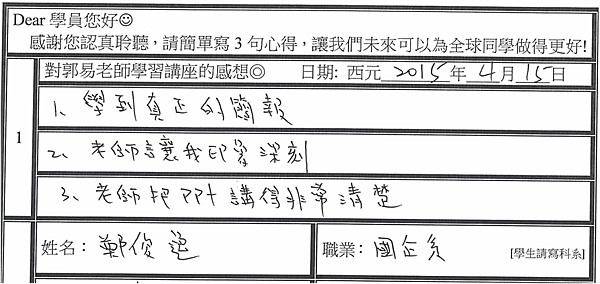 Dear 學員您好☺
感謝您認真聆聽，請簡單寫 3 句心得，讓我們未來可以為全球同學做得更好!
對郭易老師學習講座的感想◎ 日期: 西元 2015 年 4 月 15 日
1
1、學到真正的簡報
2、老師讓我印象深刻
3、老師把 PPT 講得非常清楚
姓名: 鄭俊 職業: 國企系 [學生請寫科系]